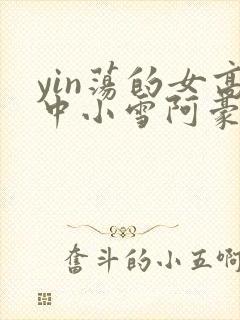 yin荡的女高
中小雪阿豪
奋斗的小五啊